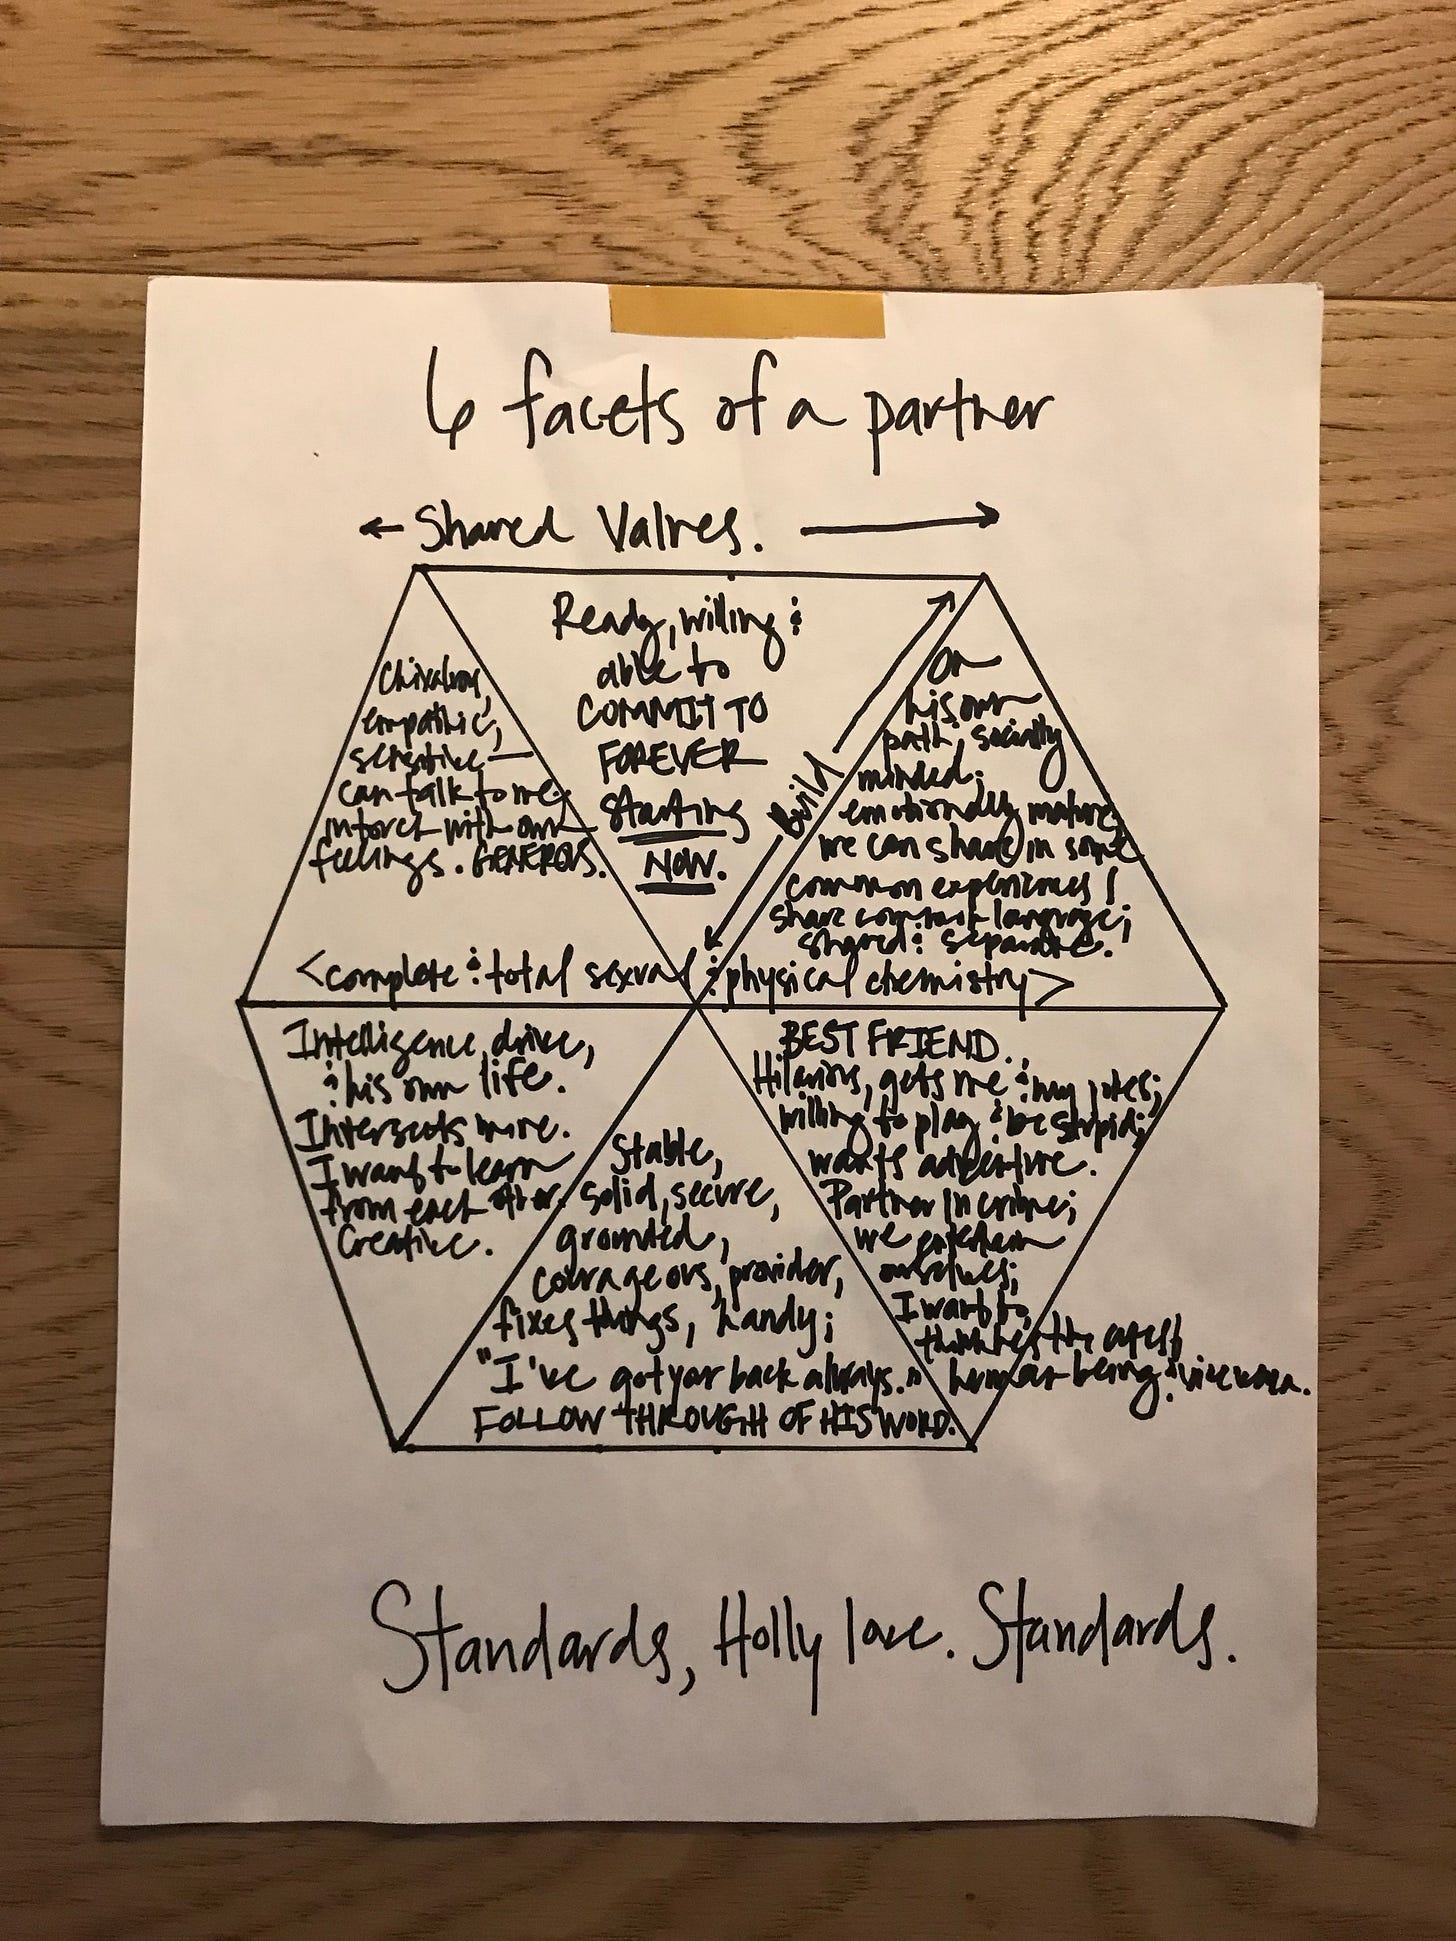 6 facets of a partner
← Shared Values. →
Chivalrous,
empathic,
sensitive —
can talk to me;
in touch with own
feelings. GENEROUS.
Ready, willing &
able to
COMMIT TO
FOREVER
starting
NOW.
← Build →
On
his own
path; socially
minded;
emotionally mature;
we can share in some
common experiences /
share common language;
shared & separate.
<complete & total sexual & physical chemistry>
Intelligence, drive,
& his own life.
Intersects mine.
I want to learn
from each other.
Creative.
Stable,
solid, secure,
grounded,
courageous, provider,
fixes things, handy;
"I've got your back always."
FOLLOW THROUGH OF HIS WORD.
BEST FRIEND.
Hilarious, gets me & my jokes;
willing to play & be stupid;
wants adventure.
Partner in crime;
we entertain
ourselves;
I want to
think he's the
human being & vice versa.
Standards, Holly love. Standards.